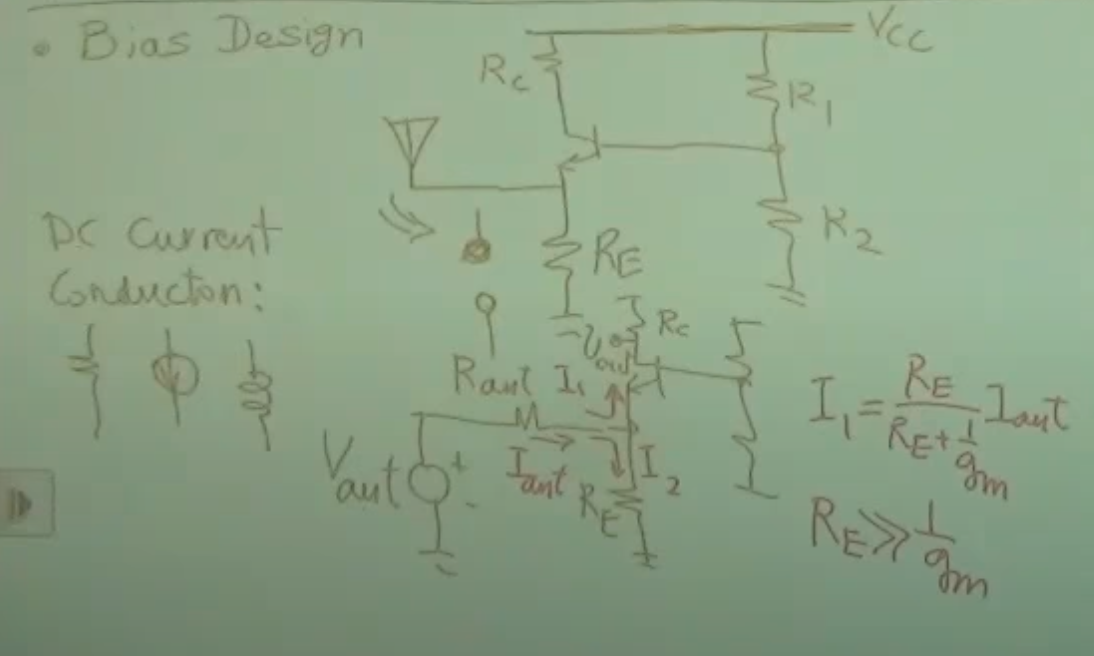 • Bias Design
VCC
Rc
R1
R2
RE
DC Current
Conduction:
Rc
Vout
Rant
I1
Vant
+
-
Iant
I2
RE
I1 = RE / (RE + 1/gm) Iant
RE ≫ 1/gm